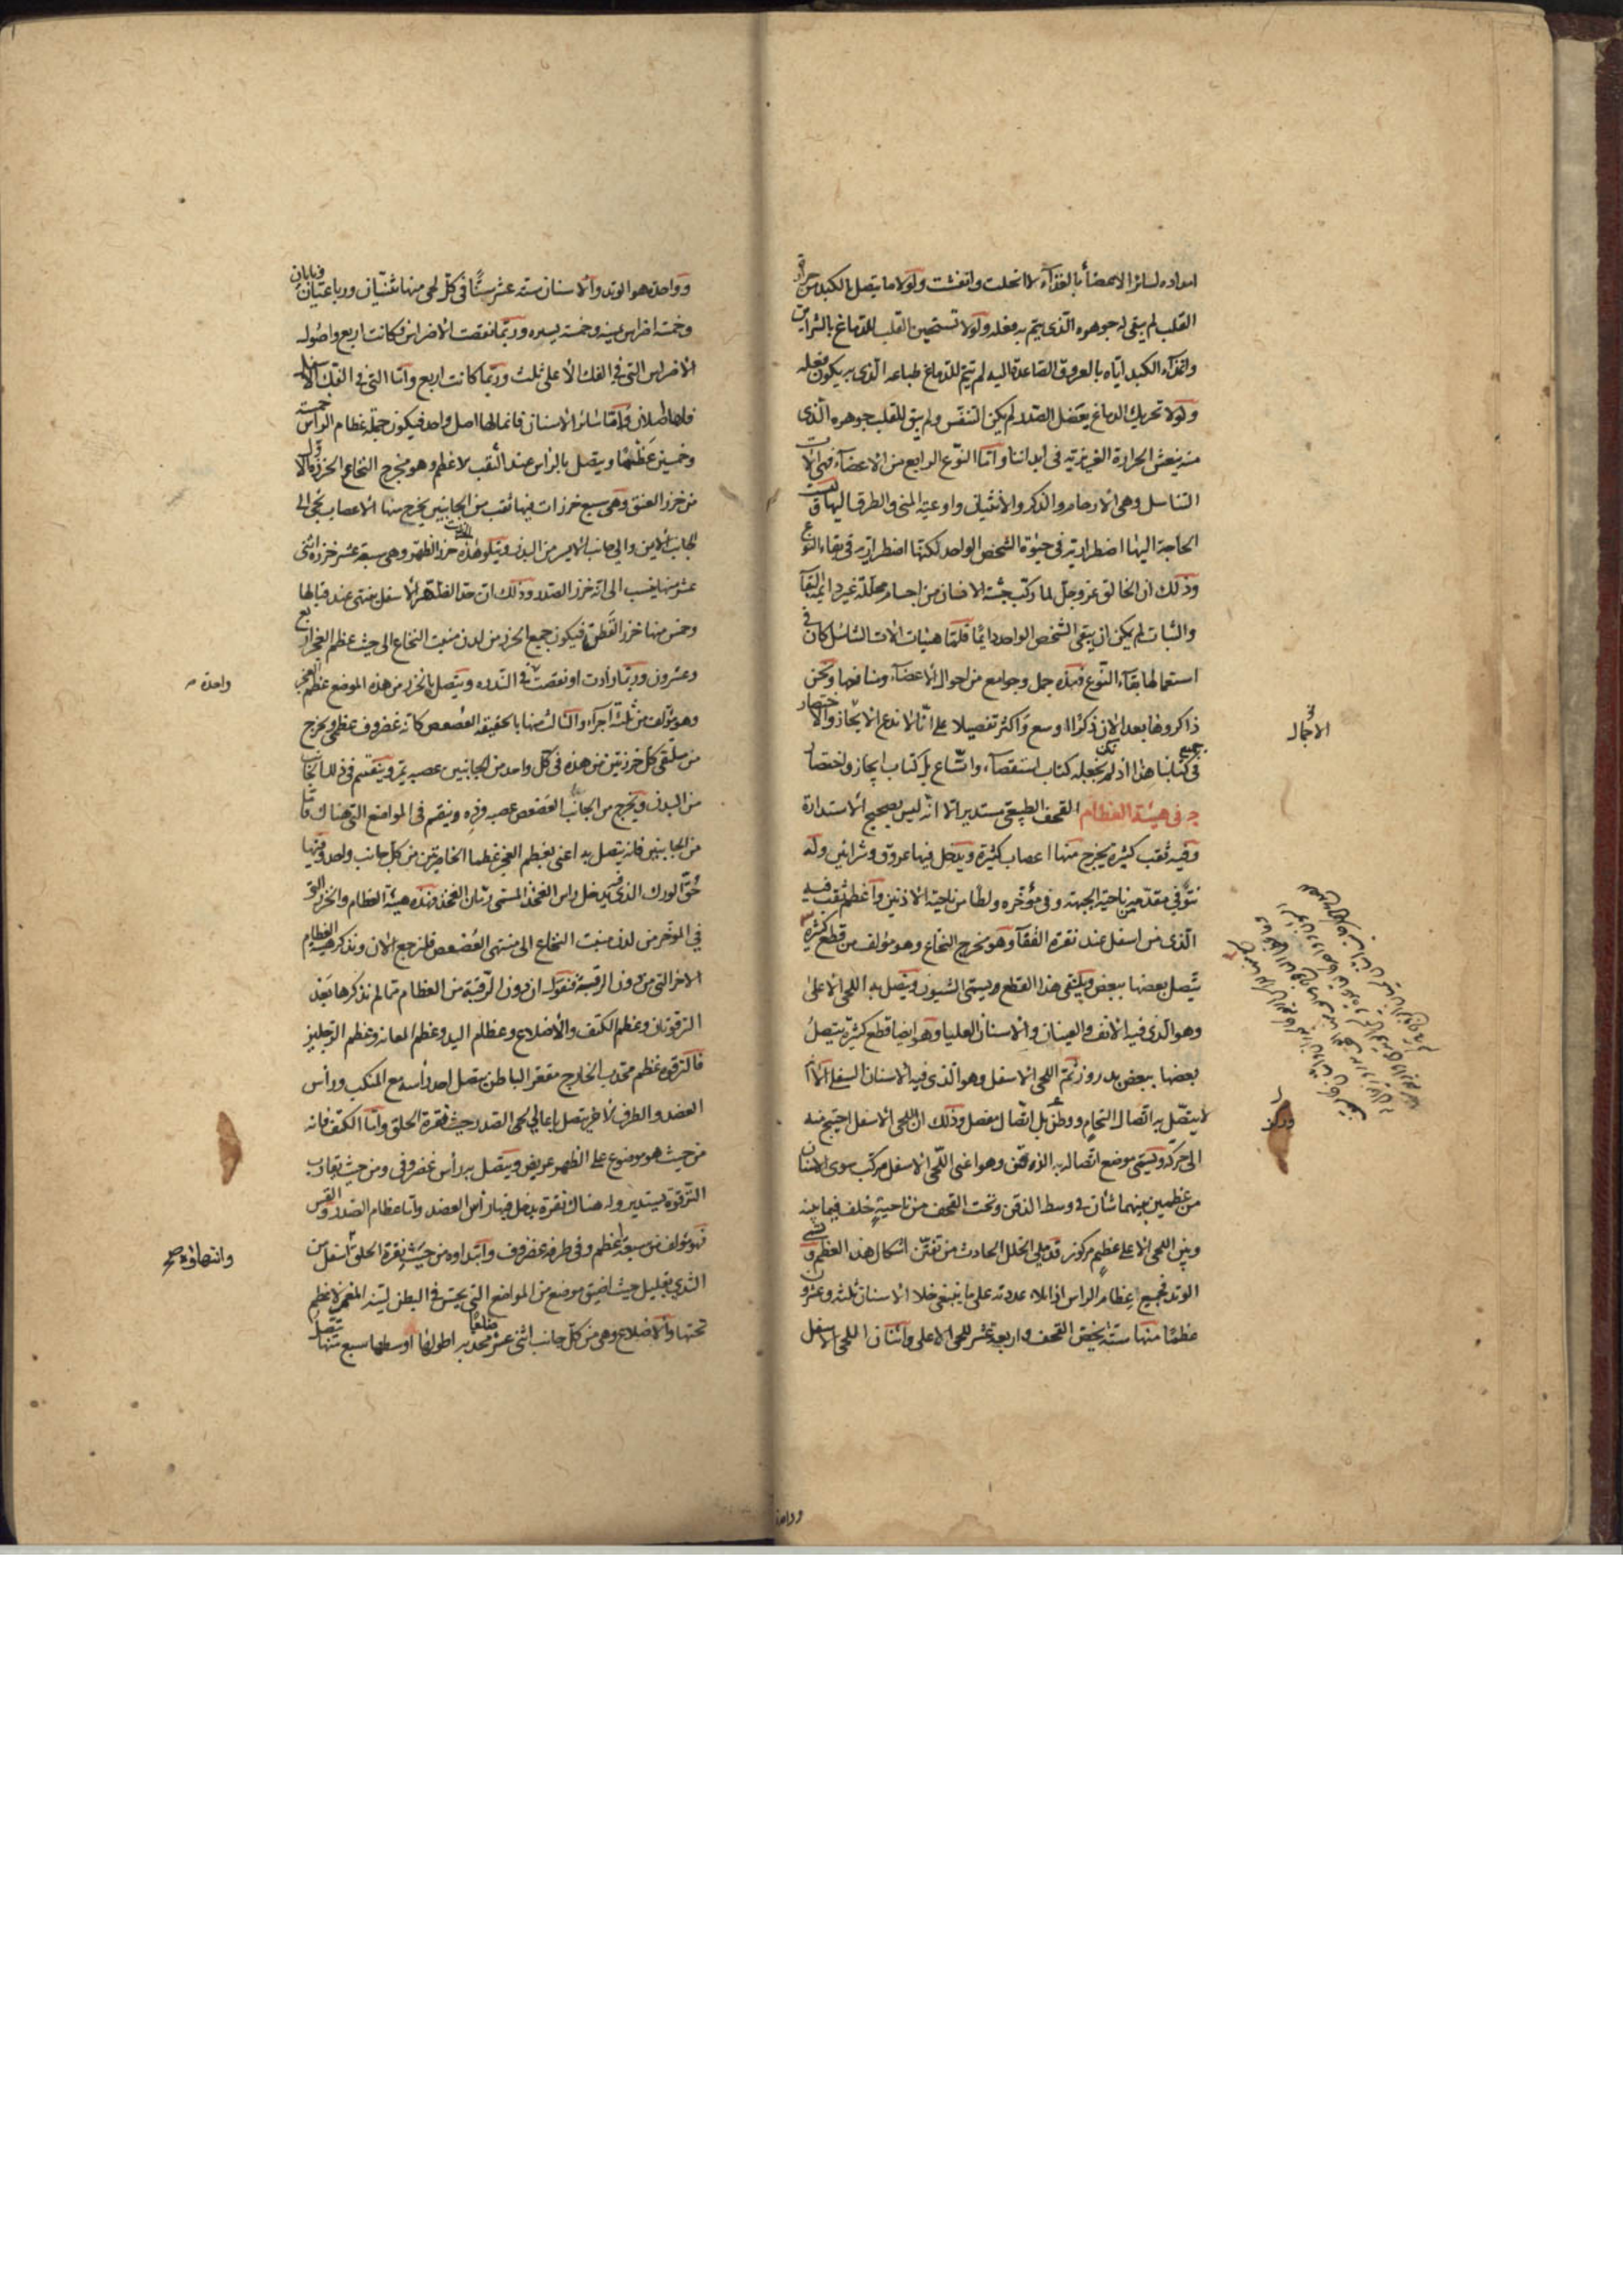 امداده لسائر الاعضاء بالغذاء لانحلت وانفشت ولولا ما يتصل بالكبد من حرارة
القلب لم يبق له جوهره الذى يتم به فعله ولولا تسخين القلب للدماغ بالشرايين
واغذاء الكبد اياه بالعروق الصاعدة اليه لم تتم للدماغ طباعه الذى به يكون فعله
ولولا تحريك الدماغ بعضل الصدر لم يكن التنفس ولم يبق للقلب جوهره الذى
منه ينبعث الحرارة الغريزية فى أبداننا وأما النوع الرابع من الاعضاء فهى آلات
التناسل وهى الارحام والذكر والانثيان واوعية المنى والطرق اليها وليست
الحاجة اليها اضطرارية فى حيوة الشخص الواحد لكنها اضطرارية فى بقاء النوع
وذلك ان الخالق عز وجل لما ركب جثة الانسان من اجسام محللة غير دايمة البقاء
والثبات لم يكن ان يبقى الشخص الواحد دايما فلما هيئات الات التناسل كان فى
استعمالها بقاء النوع فهذه جمل وجوامع من احوال الاعضاء ومنافعها ونحن
ذاكروها بعد الان ذكرا اوسع واكثر تفصيلا على أنا لا ندع الايجاز والاختصار
فى جميع كتابنا هذا اذ لم نكن نجعله كتاب استقصاء واتساع بل كتاب ايجاز واختصار
فى هيئة العظام القحف الطبيعى مستدير الا انه ليس بصحيح الاستدارة
وفيه ثقب كثيرة يخرج منها اعصاب كثيرة ويدخل فيها عروق وشرايين وله
نتو فى مقدمه من ناحية الجبهة وفى مؤخره ولطأ من ناحية الاذنين وأعظم ثقب فيه
الذى من اسفل عند نقرة القفا وهو مخرج النخاع وهو مؤلف من قطع كثيرة
يتصل بعضها ببعض ويلتقى هذا القطع ويسمى الشيون ويتصل به اللحى الاعلى
وهو الذى فيه الانف والعينان والاسنان العليا وهو ايضا قطع كثيرة يتصل
بعضها ببعض بدروز ثم اللحى الاسفل وهو الذى فيه الاسنان السفلى الا انه
لا يتصل به اتصال التحام ودرز بل اتصال مفصل وذلك ان اللحى الاسفل احتيج منه
الى حركة ويسمى موضع اتصاله به الذقن وهو اعنى اللحى الاسفل مركب سوى الاسنان
من عظمين بينهما شأن فى وسط الذقن وتحت القحف من ناحية خلف فيما بينه
وبين اللحى الاعلى عظيم مركوز قد ملى الخلل الحادث من تفنن اشكال هذا العظم ويسمى
الوتد فجميع عظام الراس اذا عددته على ما ينبغى خلا الاسنان ثلثة وعشرون
عظما منها ستة تخص القحف واربعة عشر للحى الاعلى واثنان اللحى الاسفل
الأجمال
ودرز
وواحد
وواحد هو الوتد والاسنان ستة عشر سنا فى كل لحى منها ثنيتان ورباعيتان ونابان
وخمسة اضراس يمنة وخمسة يسرة وربما نقصت الاضراس فكانت اربع واصول
الاضراس التى فى الفك الاعلى ثلث وربما كانت اربع وأما التى فى الفك الاسفل
فلها اصلان وأما سائر الاسنان فانما لها اصل واحد فيكون جملة عظام الراس خمسة
وخمسين عظما ويتصل بالراس عند الثقب الاعظم وهو مخرج النخاع الخرز الاول
من خرز العنق وهى سبع خرزات فيها ثقب من الجانبين يخرج منها الاعصاب تجى الى
الجانب الايمن والى جانب الايسر من البدن ويتلو هذه خرز الظهر وهى سبعة عشر خرزة اثنى
عشر منها ينسب الى انه خرز الصدر وذلك ان حد الظهر الاسفل ينتهى عند قبالها
وخمس منها خرز القطن فيكون جميع الخرز من لدن منبت النخاع الى حيث عظم العجز اربع
وعشرون وربما زادت او نقصت فى الندره ويتصل بالخرز من هذه الموضع عظم العجز
وهو مؤلف من ثلثة اجزاء والثالث منها بالحقيقة العصعص كانه غضروف عظمى ويخرج
من ملتقى كل خرزتين من هذه فى كل واحد من الجانبين عصبه تمر وينقسم فى ذلك الجانب
من البدن ويخرج من الجانب العصعص عصبه فرده وينقسم فى المواضع التى هناك فأما
من الجانبين فانه يتصل به اعنى بعظم العجز عظما الخاصرتين من كل جانب واحد وفيها
حق الورك الذى يدخل راس الفخذ المسمى رمان الفخذ فهذه هيئة العظام والخرز التى
فى الموخر من لدن منبت النخاع الى منتهى العصعص فلنرجع الان ونذكر هيئة العظام
الاخر التى من دون الرقبة فنقول ان دون الرقبة من العظام مما لم نذكرها بعد
الترقوتان وعظم الكتف والأضلاع وعظام اليد وعظم العانة وعظم الرجلين
فالترقوة عظم محدب الخارج مقعر الباطن يتصل احد رأسه مع المنكب وراس
العضد والطرف الاخر يتصل باعالى لحى الصدر حيث نقرة الحلق وأما الكتف فانه
من حيث هو موضوع على الظهر عريض ويتصل به رأس غضروفى ومن حيث يقارب
الترقوة يستدير وله هناك نقرة يدخل فيها رأس العضد وأما عظام الصدر والقس
فهو مؤلف من سبعة اعظم وفى طرفه غضروف وابتداوه من حيث نقرة الحلق اسفل من
الثدى بقليل حيث اضيق موضع من المواضع التى يحس فى البطن لينة المغمز لا عظم
تحتها والاضلاع وهى من كل جانب اثنى عشر ضلعا محدبه اطولها اوسطها سبع منها تتصل
واحدة
وانتهاؤه صح